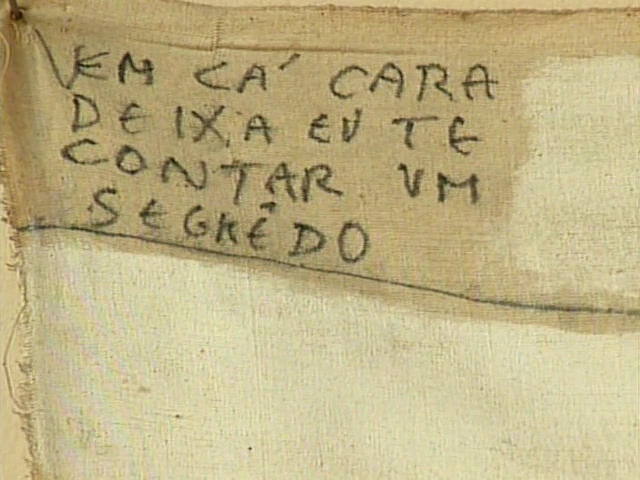 VEM CA' CARA
DEIXA EU TE
CONTAR UM
SEGRÊDO